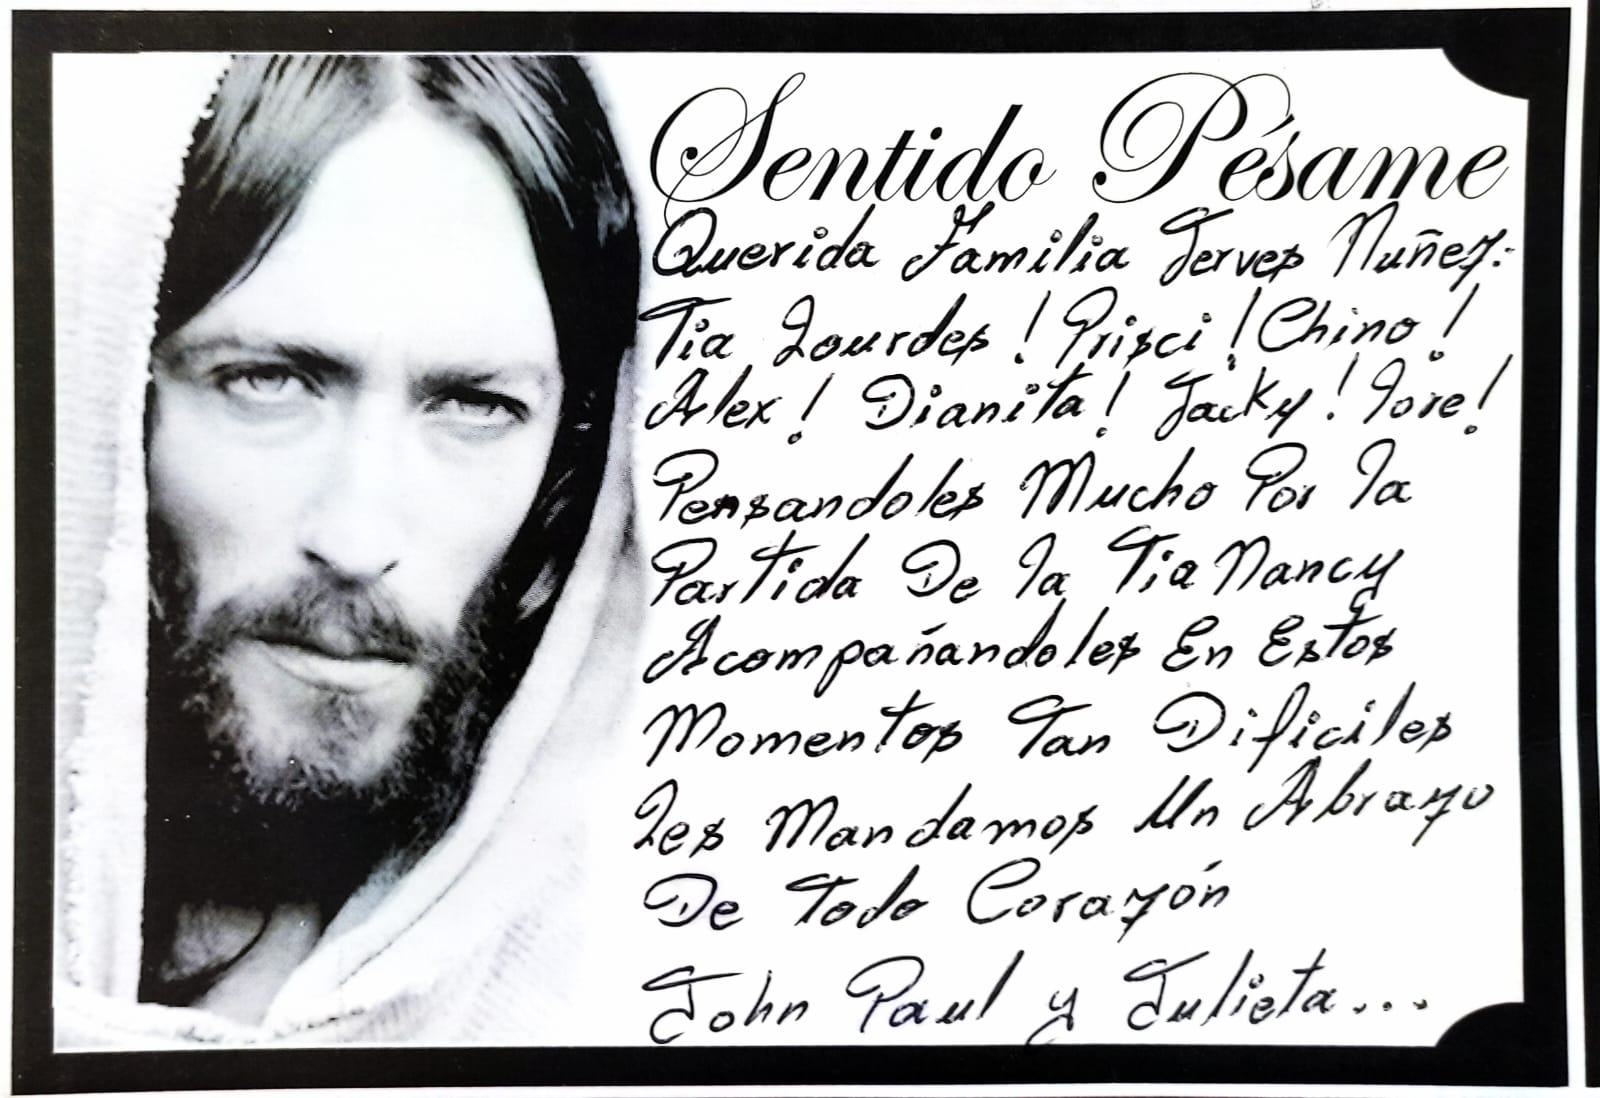 Sentido Pésame
Querida Familia Jerves Nuñez:
Tia Lourdes! Prisci! Chino!
Alex! Dianita! Jacky! Jose!
Pensandoles Mucho Por la
Partida De la Tia Nancy
Acompañandoles En Estos
Momentos Tan Dificiles
Les Mandamos Un Abrazo
De Todo Corazón
John Paul y Julieta...